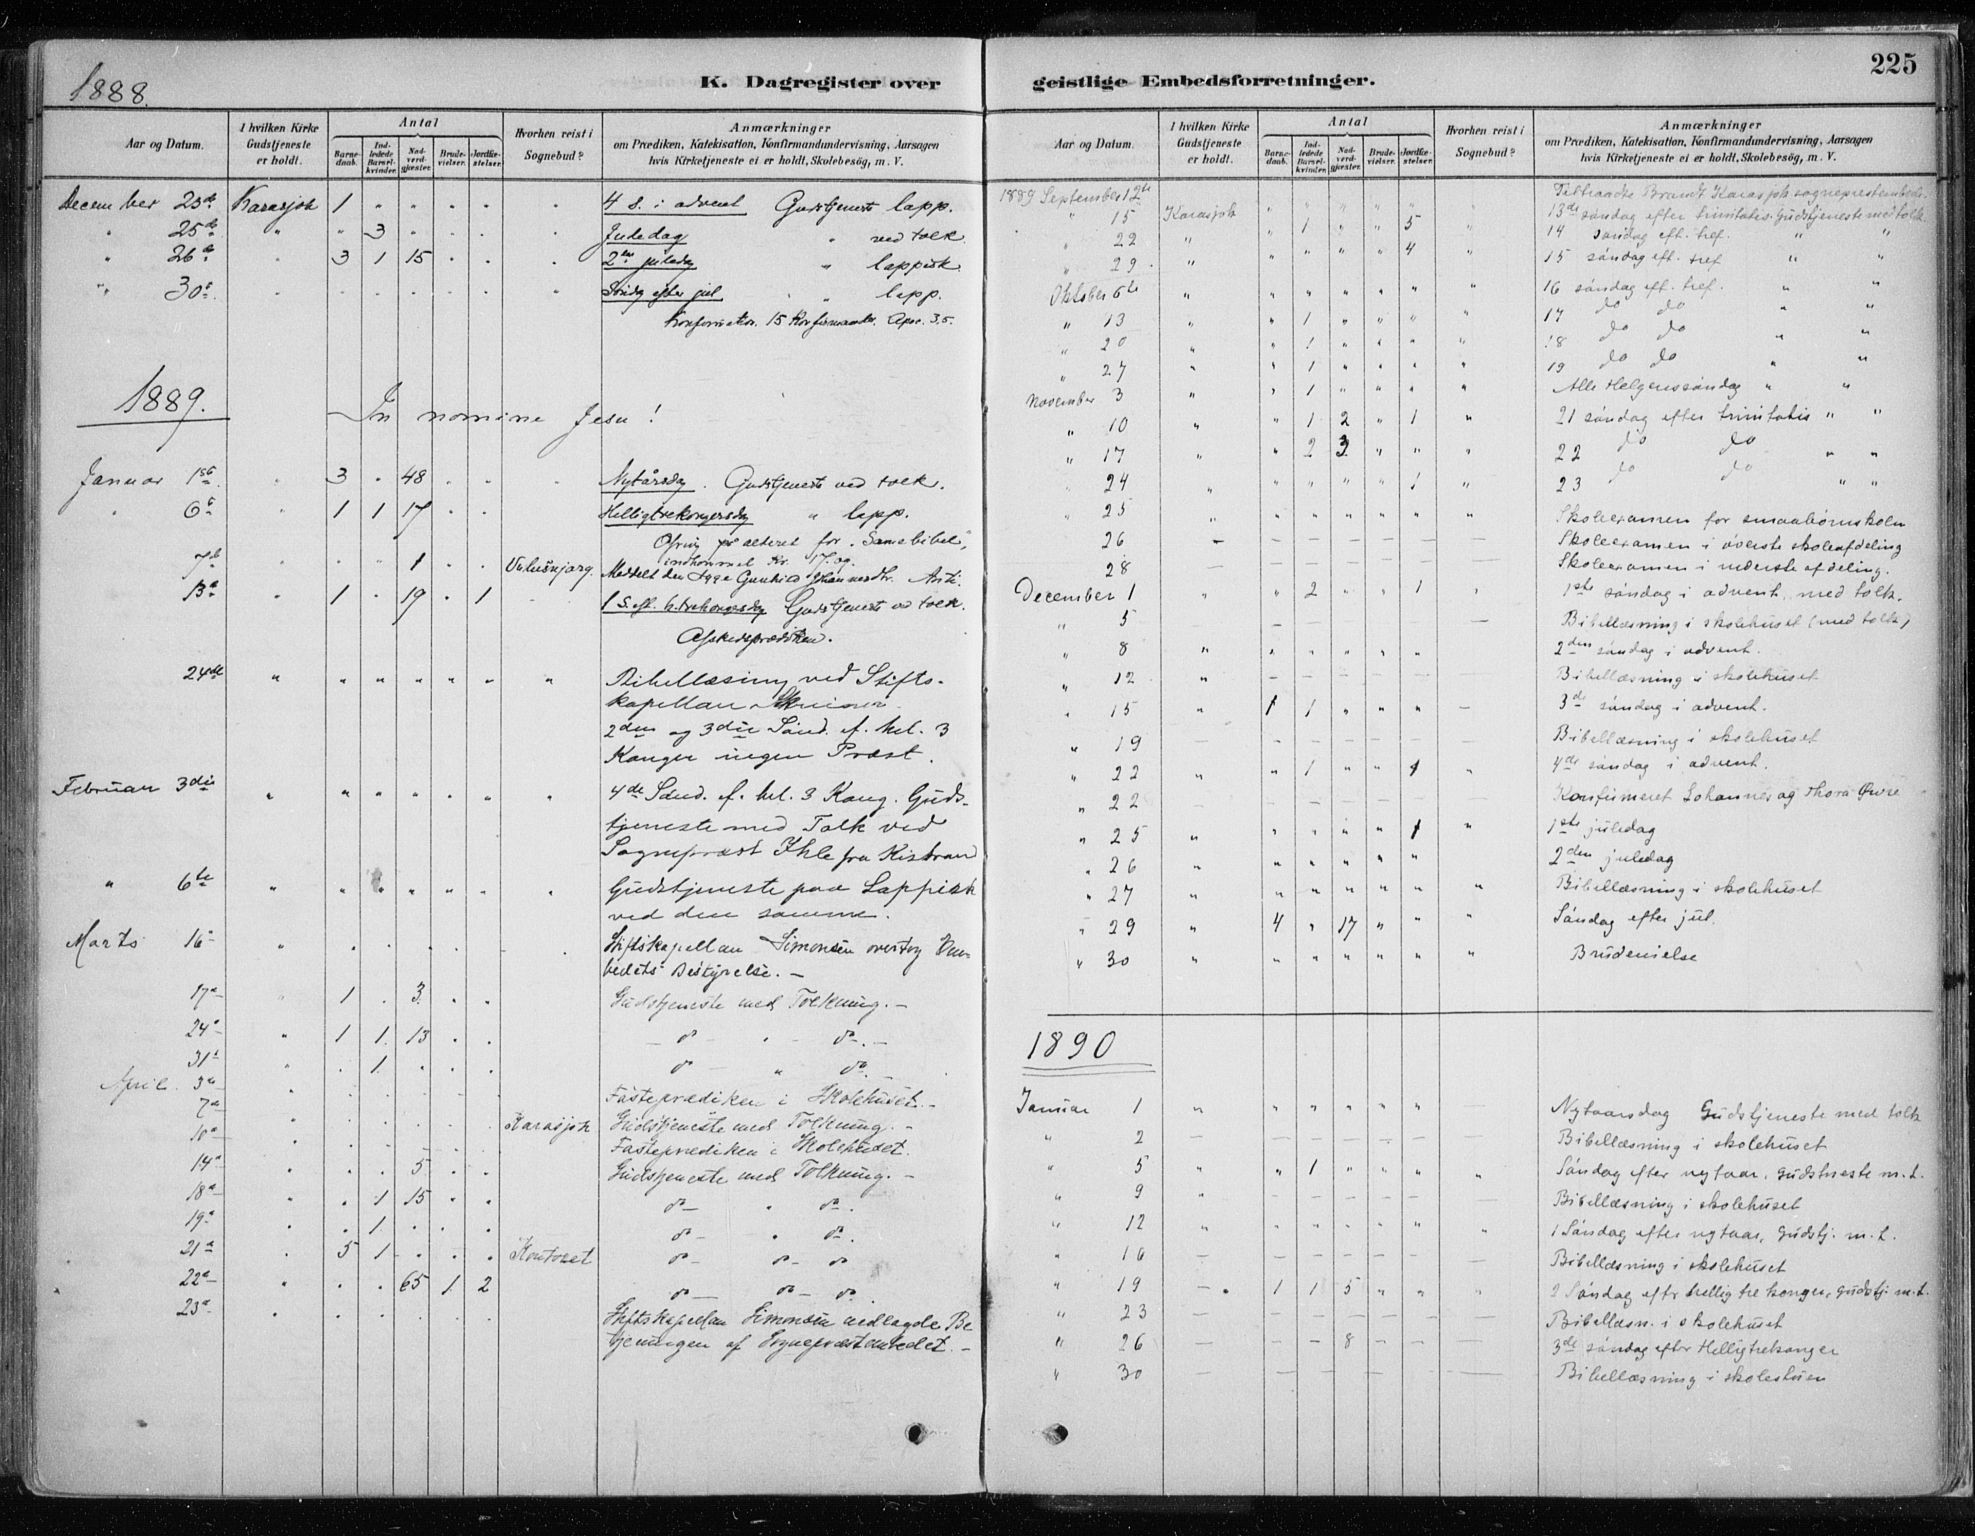 1888.
K. Dagregister over
Aar og Datum.
I hvilken Kirke Gudstjeneste er holdt.
Antal
Barnedaab.
Indledede Barselkvinder.
Nadverdgjester.
Brudevielser.
Jordfæstelser.
Hvorhen reist i Sognebud?
Anmærkninger
om Prædiken, Katekisation, Konfirmandundervisning, Aarsagen
hvis Kirketjeneste ei er holdt, Skolebesög, m. V.
December 23de Karasjok 1 " " " " " 4 s. i advent Gudstjeneste lapp.
" 25de " " 3 " " " Juledag " ved tolk.
" 26de " 3 1 15 " " " 2den juledag " lappisk
" 30te " " " " " " " Søndag efter jul " lapp.
Konfirmation. 15 Konfirmander.
1889. In nomine Jesu!
Januar 1ste " 3 " 48 " " " Nytårsdag. Gudstjeneste ved tolk.
" 6te " 1 1 17 " " Helligtrekongersdag " lapp.
Ofring på alteret for "Samebibel",
indkommet Kr. 17.09.
7de " " " 1 " " Meddelt den syge
13de " 1 " 19 " 1 1 S. ef. h. trekongersdag Gudstjeneste ved tolk.
Afskedsprædiken.
24de " " " " " " " Bibellæsning ved Stifts-
kapellan
2den og 3die Sønd. ef. hel. 3
Konger ingen Præst.
Februar 3die " " " " " " " 4de Sønd. ef. hel. 3 Kong. Guds-
tjeneste med Tolk ved
Sognepræst Ihle fra Kistrand
" 6te " " " " " " " Gudstjeneste paa Lappisk
ved den samme.
Marts 16de " . . . . . . Stiftskapellan Simonsen overtog Em-
bedets Bestyrelse. —
17de " 1 . 3. . . Gudstjeneste med Tolkning. —
24de " 1 1. 13 . . — do — " do. —
31te " . 1. . . . do — " do. —
April 3de " . . . . . Fasteprædiken i Skolehuset. —
7de " . . . . . Karasjok Gudstjeneste med Tolkning. —
10de " . . . . . Fasteprædiken i Skolehuset.
14de " . . 5 . . Gudstjeneste med Tolkning. —
18de " . 1 15 . . do — " do.
19de " . 1. . . . do — " do.
21de " 5 1 . . . Kontoret do — do — do
22de " . . 65 1. 2 do — do — do.
23de . . . . . . Stiftskapellan Simonsen nedlagde Be
tjeningen af Sognepræstembedet. —
geistlige Embedsforretninger.
225
Aar og Datum.
I hvilken Kirke Gudstjeneste er holdt.
Antal
Barnedaab.
Indledede Barselkvinder.
Nadverdgjester.
Brudevielser.
Jordfæstelser.
Hvorhen reist i Sognebud?
Anmærkninger
om Prædiken, Katekisation, Konfirmandundervisning, Aarsagen
hvis Kirketjeneste ei er holdt, Skolebesög, m. V.
1889 September 12te Tiltraadte Brandt Karasjok sogneprestembede.
" 15 Karasjok " 1 " " 5 " 13de søndag efter trinitatis. Gudstjeneste med tolk
" 22 " " " " " 4 " 14 søndag eft. tref. " "
" 29 " " " " " " " 15 søndag eft. tref " "
Oktober 6te " " " " " " " 16 søndag eft. tref. " "
" 13 " " 1 " " " " 17 do do " "
" 20 " " 1 " " " " 18 do do " "
" 27 " " 1 " " " " 19 do do " "
November 3 " " 1 " " " " Alle Helgenssøndag " "
" 10 " " 1 2 " 1 " 21 søndag efter trinitatis " "
" 17 " " 2 3 " " " 22 do do " "
" 24 " " " " " 1 " 23 do do " "
" 25 " " " " " " " Skoleexamen for smaabørnskolen
26 — — — — — — — Skoleexamen i øverste skoleafdeling
28 — — — — — — — Skoleexamen i nederste afdeling.
December 1 " " 2 " " 1 " 1ste søndag i advent, med tolk.
" 5 — — — — — — — Bibellæsning i skolehuset (med tolk)
" 8 " " " " " " 2den søndag i advent.
" 12 " — — — — — — Bibellæsning i skolehuset
" 15 " 1 1 " " " — 3de søndag i advent.
" 19 — — — — — — — Bibellæsning i skolehuset
" 22 " " 1 " " 1 " 4de søndag i advent.
" 22 — — — — — — — Konfirmeret Johannes og Thora
" 25 " " " " " 1 " 1ste juledag
" 26 " " " " " " 2den juledag
" 27 " " " " " " " Bibellæsning i skolehuset
" 29 " 4 " 17 " " " Søndag efter jul.
" 30 " " " " " " " Brudevielse
1890
Januar 1 " " " " " " — Nytaarsdag Gudstjeneste med tolk
" 2 — — — — — — — Bibellæsning i skolehuset
" 5 " " 1 " " " " Søndag efter nytaar, Gudstneste m. t.
" 9 " — — — — — — Bibellæsning i skolehuset
" 12 " " " " " " " 1 Søndag efter nytaar, Gudstj. m. t.
" 16 — — — — — — — Bibellæsning i skolehuset
" 19 — 1 1 5 " " " 2 Søndag eftr hellig tre konger, Gudstj. m. t.
" 23 — — — — — — — Bibellæsn. i skolehuset
" 26 — — — 8 — — — 3de søndag eftr Helligtrekonger
" 30 — — — — — — — Bibellæsning i